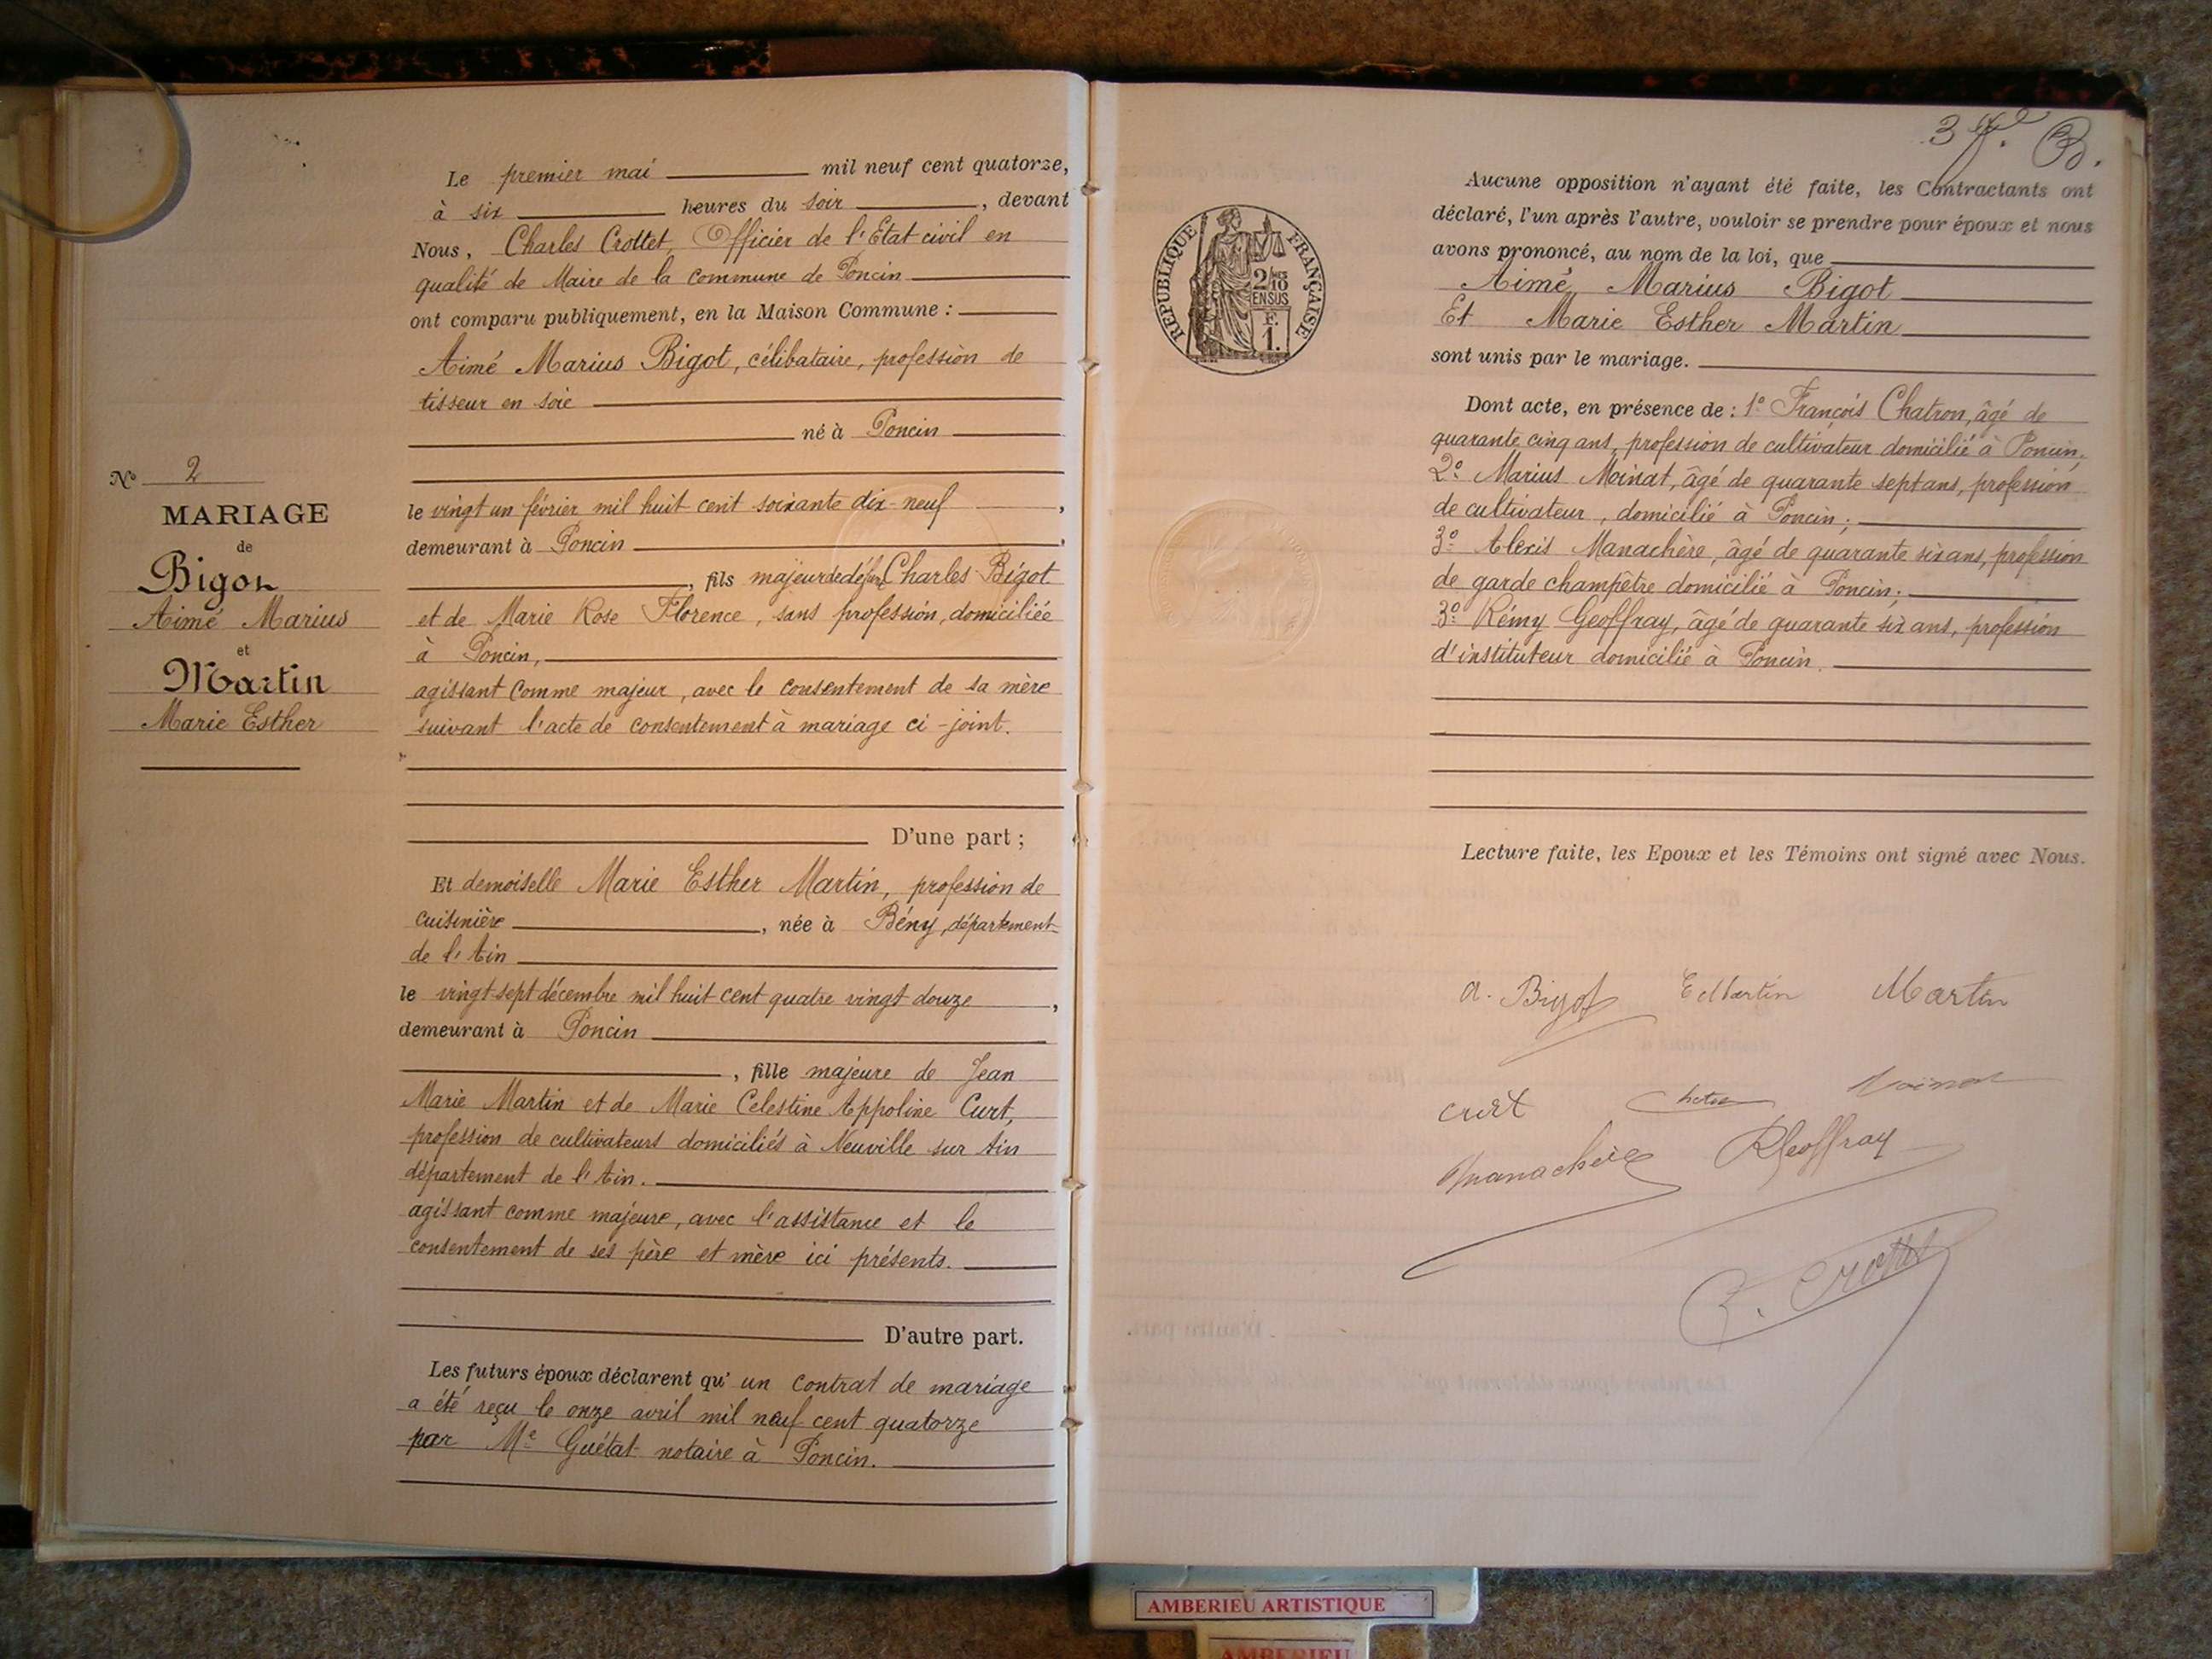 N° 2
MARIAGE
de
Bigot
Aimé Marius
et
Martin
Marie Esther
Le premier mai mil neuf cent quatorze,
à six heures du soir, devant
Nous, Charles Crottet, Officier de l'Etat civil en
qualité de Maire de la commune de Poncin
ont comparu publiquement, en la Maison Commune :
Aimé Marius Bigot, célibataire, profession de
tisseur en soie
né à Poncin
le vingt un février mil huit cent soixante dix-neuf,
demeurant à Poncin,
, fils majeur de défunt Charles Bigot
et de Marie Rose Florence, sans profession, domiciliée
à Poncin,
agissant comme majeur, avec le consentement de sa mère
suivant l'acte de consentement à mariage ci-joint.
D'une part ;
Et demoiselle Marie Esther Martin, profession de
cuisinière, née à Bény, département
de l'Ain
le vingt-sept décembre mil huit cent quatre vingt douze,
demeurant à Poncin
, fille majeure de Jean
Marie Martin et de Marie Celestine Appoline Curt,
profession de cultivateurs domiciliés à Neuville sur Ain
département de l'Ain.
agissant comme majeure, avec l'assistance et le
consentement de ses père et mère ici présents.
D'autre part.
Les futurs époux déclarent qu'un contrat de mariage
a été reçu le onze avril mil neuf cent quatorze
par Me Guétat notaire à Poncin.
3
B.
REPUBLIQUE FRANÇAISE
2/10 MES
EN SUS
F.
1.
Aucune opposition n'ayant été faite, les Contractants ont
déclaré, l'un après l'autre, vouloir se prendre pour époux et nous
avons prononcé, au nom de la loi, que
Aimé Marius Bigot
Et Marie Esther Martin
sont unis par le mariage.
Dont acte, en présence de : 1° François Chatron, âgé de
quarante cinq ans, profession de cultivateur domicilié à Poncin;
2° Marius Moinat, âgé de quarante sept ans, profession
de cultivateur, domicilié à Poncin;
3° Alexis Manachère, âgé de quarante six ans, profession
de garde champêtre domicilié à Poncin;
3° Rémy Geoffray, âgé de quarante six ans, profession
d'instituteur domicilié à Poncin.
Lecture faite, les Epoux et les Témoins ont signé avec Nous.
a. Bigot E Martin Martin
Curt
Manachère RGeoffray
C. Crottet
AMBERIEU ARTISTIQUE
AMBERIEU